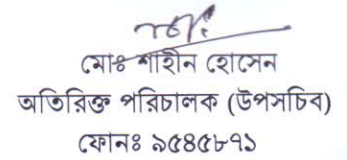 মোঃ শাহীন হোসেন
অতিরিক্ত পরিচালক (উপসচিব)
ফোনঃ ৯৫৪৫৮৭১